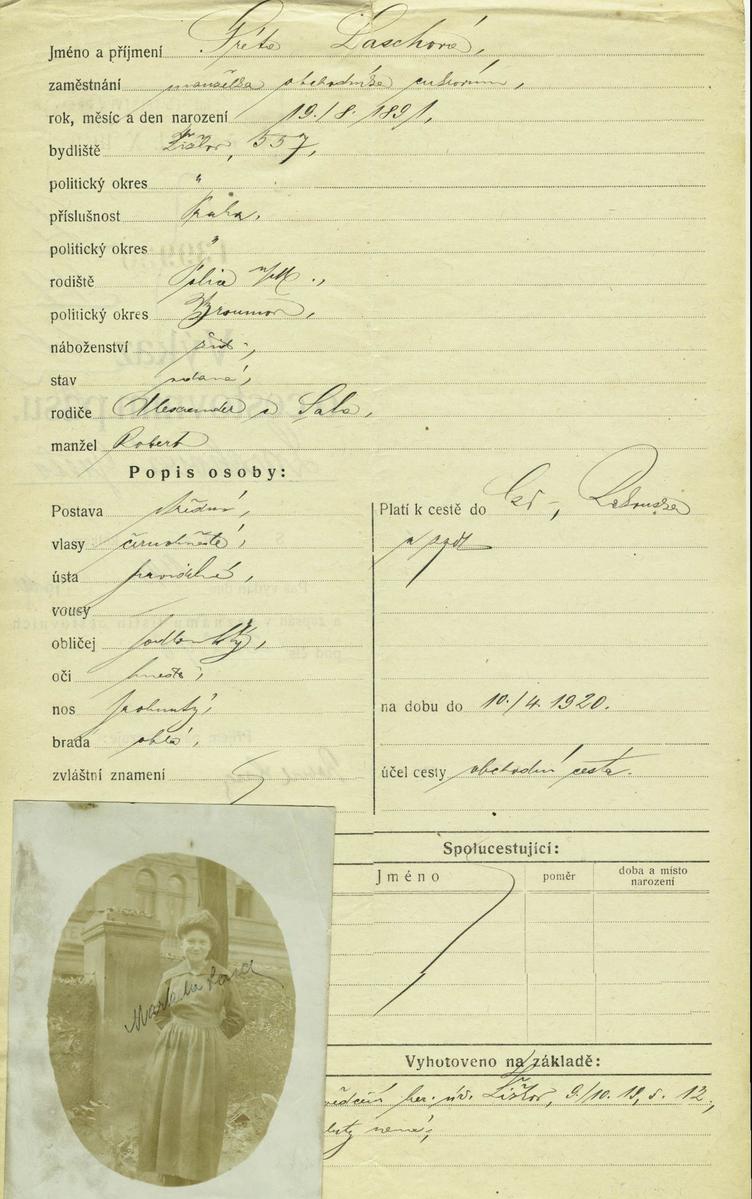 Jméno a příjmení Gréta Laschová,
zaměstnání manželka obchodníka cukrovím,
rok, měsíc a den narození 19./8. 1891,
bydliště Žižkov, 557,
politický okres "
příslušnost Praha,
politický okres "
rodiště Police n/M.,
politický okres Broumov,
náboženství žid.,
stav vdaná,
rodiče Alexander a Sala,
manžel Robert
Popis osoby:
Postava střední,
vlasy černohnědé,
ústa pravidelné,
vousy
obličej podlouhlý,
oči hnědé,
nos prohnutý,
brada oblá,
zvláštní znamení
Platí k cestě do Rakouska
a zpět
na dobu do 10./4. 1920.
účel cesty obchodní cesta.
Spolucestující:
Jméno poměr doba a místo narození
Vyhotoveno na základě:
Žižkov, 9/10. 19, s. 12,
není,